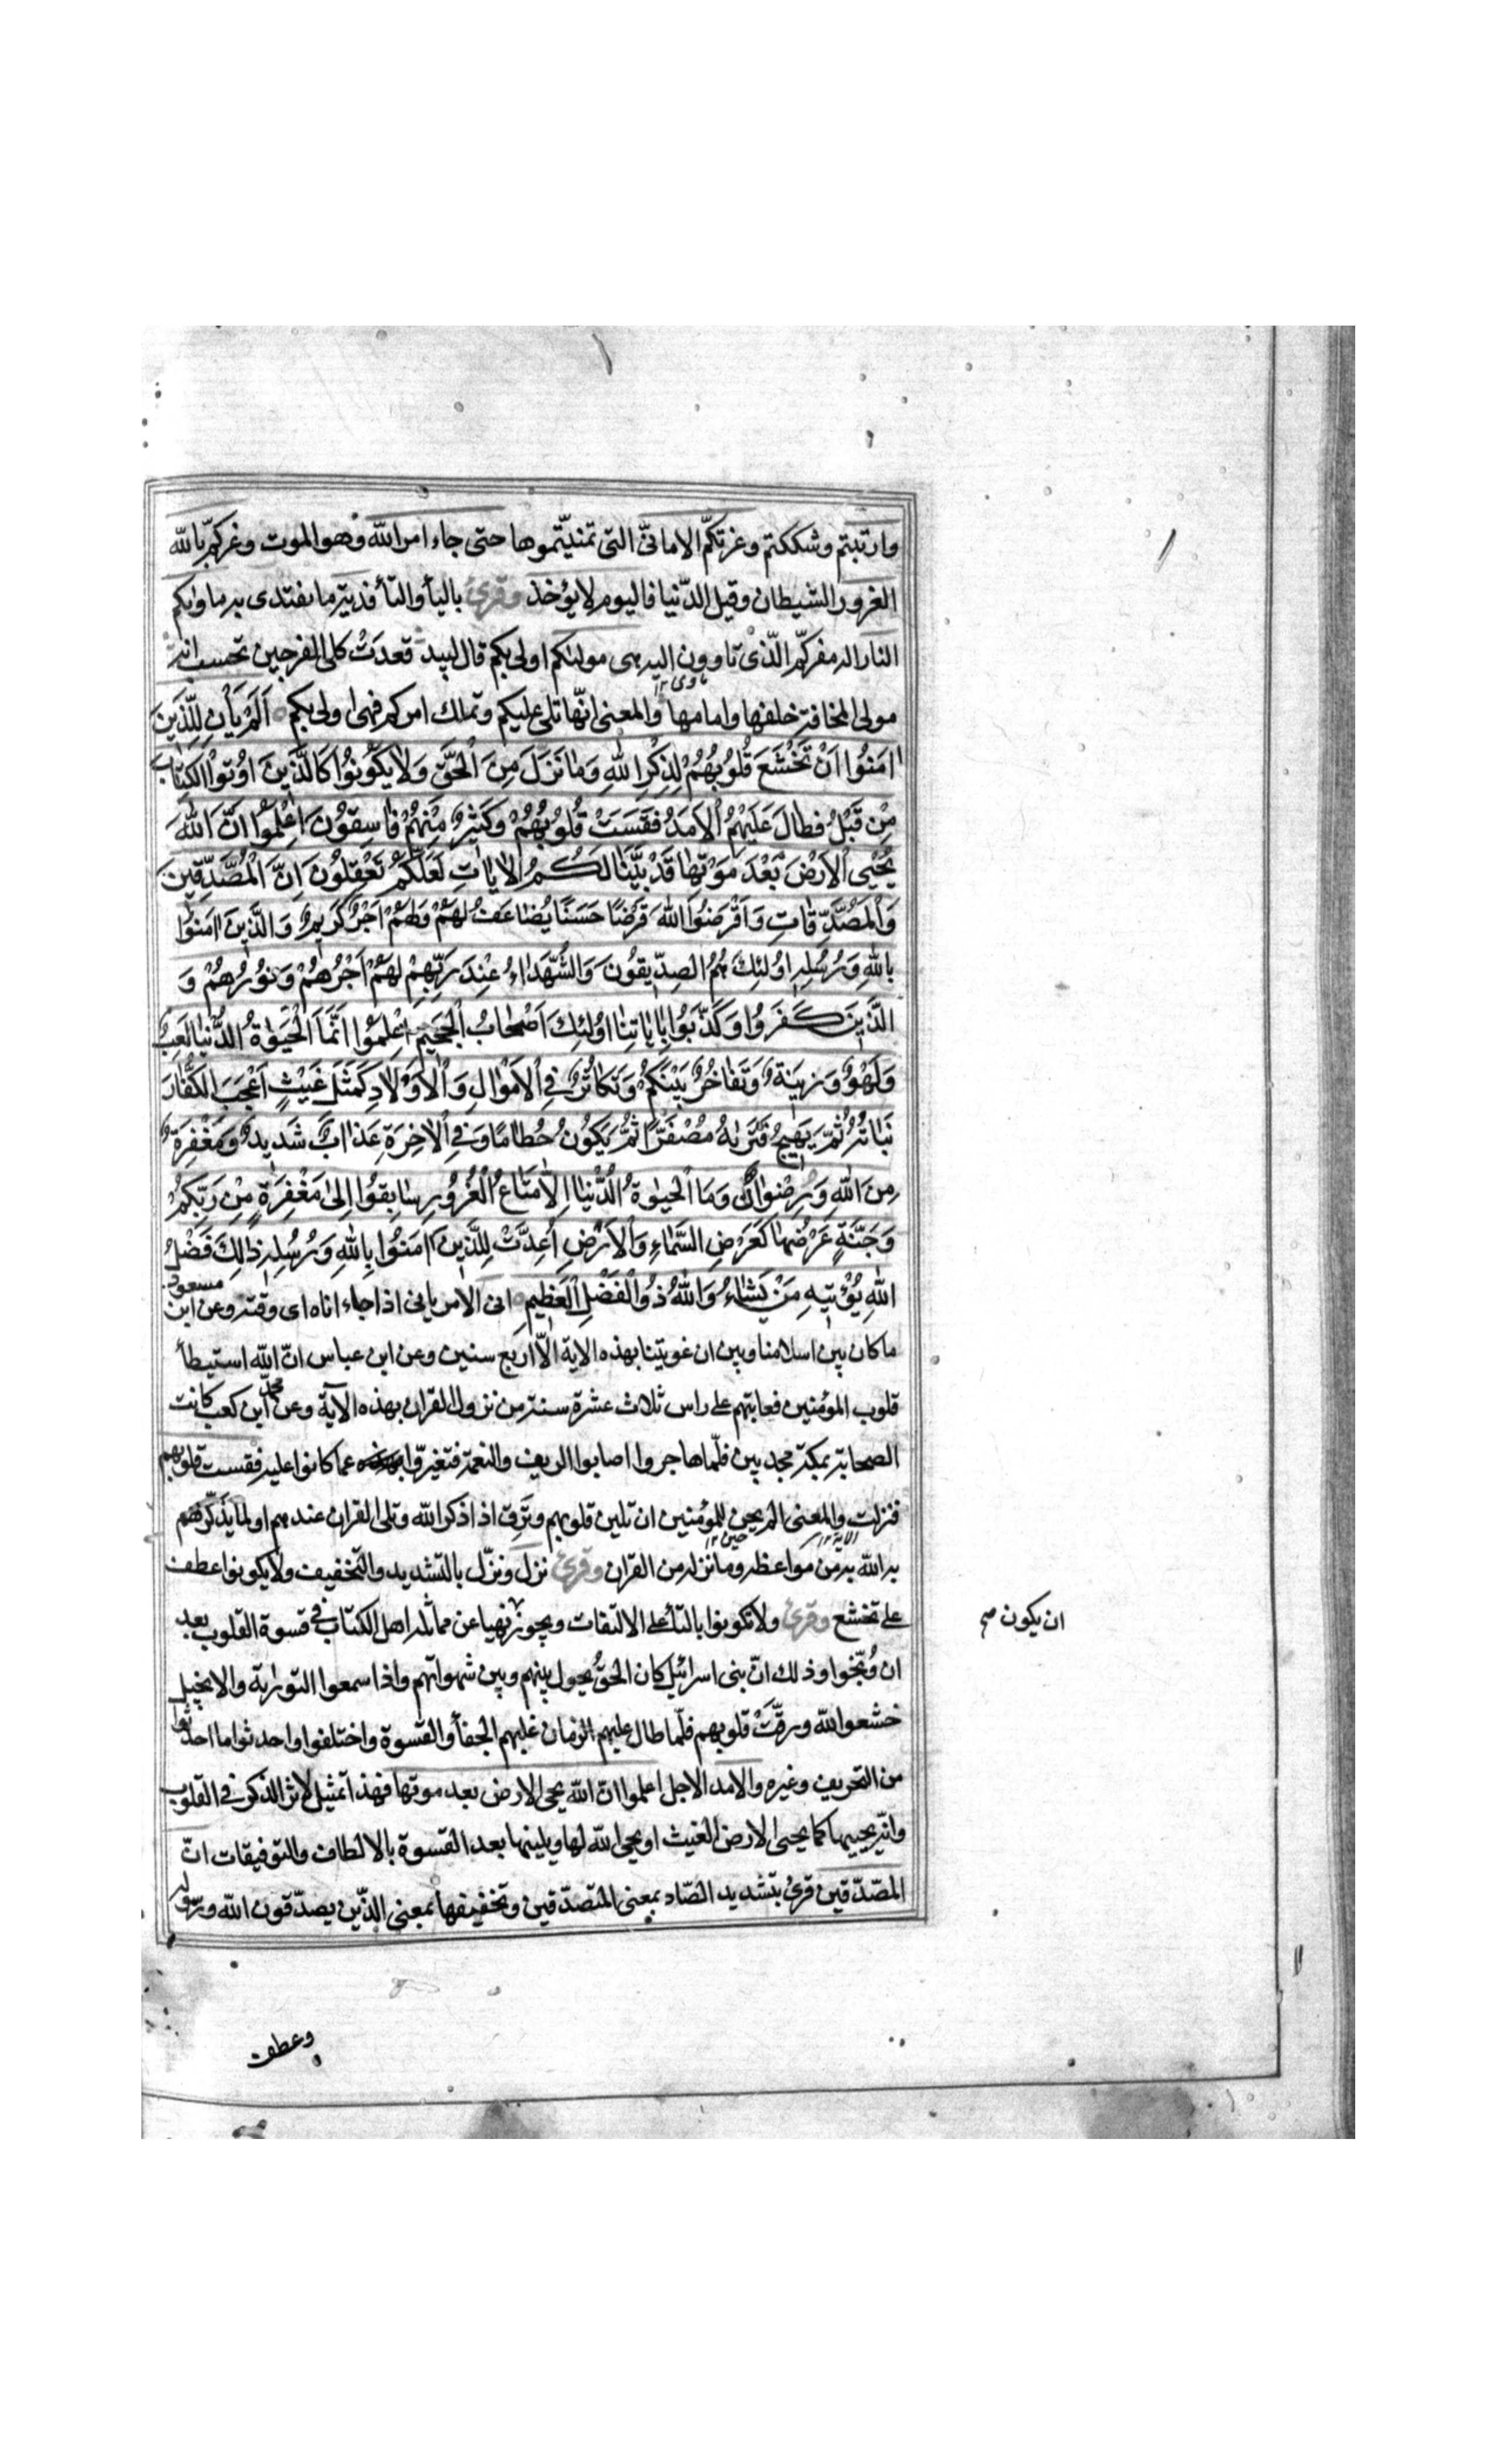 وارتبتم وشككتم وغرتكم الامانىّ التى تمنيّتموها حتى جاء امر الله وهو الموت وغركم بالله
الغرور الشيطان وقيل الدّنيا فاليوم لا يؤخذ وقرئ باليأ والتأ فدية ما يفتدى به ماويكم
النار الذى تاوون اليه هى موليكم اولى بكم قال لبيد فعدَتْ كلى الفرجين تحسب انّه
مولى المخافة خلفها وامامها والمعنى انّها تلى عليكم وتملك امركم فهى اولى بكم اَلَمْ يَأْنِ لِلَّذِينَ
اٰمَنُوا اَنْ تَخْشَعَ قُلُوبُهُمْ لِذِكْرِ اللهِ وَمَا نَزَلَ مِنَ الْحَقِّ وَلَا يَكُونُوا كَالَّذِينَ اُوتُوا الْكِتَابَ
مِنْ قَبْلُ فَطَالَ عَلَيْهِمُ الْاَمَدُ فَقَسَتْ قُلُوبُهُمْ وَكَثِيرٌ مِنْهُمْ فَاسِقُونَ اعْلَمُوا اَنَّ اللهَ
يُحْيِي الْاَرْضَ بَعْدَ مَوْتِهَا قَدْ بَيَّنَّا لَكُمُ الْاٰيَاتِ لَعَلَّكُمْ تَعْقِلُونَ اِنَّ الْمُصَّدِّقِينَ
وَالْمُصَّدِّقَاتِ وَاَقْرَضُوا اللهَ قَرْضًا حَسَنًا يُضَاعَفُ لَهُمْ وَلَهُمْ اَجْرٌ كَرِيمٌ وَالَّذِينَ اٰمَنُوا
بِاللهِ وَرُسُلِهِ اُولٰئِكَ هُمُ الصِّدِّيقُونَ وَالشُّهَدَاءُ عِنْدَ رَبِّهِمْ لَهُمْ اَجْرُهُمْ وَنُورُهُمْ وَ
الَّذِينَ كَفَرُوا وَكَذَّبُوا بِاٰيَاتِنَا اُولٰئِكَ اَصْحَابُ الْجَحِيمِ اِعْلَمُوا اَنَّمَا الْحَيٰوةُ الدُّنْيَا لَعِبٌ
وَلَهْوٌ وَزِينَةٌ وَتَفَاخُرٌ بَيْنَكُمْ وَتَكَاثُرٌ فِي الْاَمْوَالِ وَالْاَوْلَادِ كَمَثَلِ غَيْثٍ اَعْجَبَ الْكُفَّارَ
نَبَاتُهُ ثُمَّ يَهِيجُ فَتَرٰيهُ مُصْفَرًّا ثُمَّ يَكُونُ حُطَامًا وَفِي الْاٰخِرَةِ عَذَابٌ شَدِيدٌ وَمَغْفِرَةٌ
مِنَ اللهِ وَرِضْوَانٌ وَمَا الْحَيٰوةُ الدُّنْيَا اِلَّا مَتَاعُ الْغُرُورِ سَابِقُوا اِلٰى مَغْفِرَةٍ مِنْ رَبِّكُمْ
وَجَنَّةٍ عَرْضُهَا كَعَرْضِ السَّمَاءِ وَالْاَرْضِ اُعِدَّتْ لِلَّذِينَ اٰمَنُوا بِاللهِ وَرُسُلِهِ ذٰلِكَ فَضْلُ
اللهِ يُؤْتِيهِ مَنْ يَشَاءُ وَاللهُ ذُو الْفَضْلِ الْعَظِيمِ انى الامر يانى اذا جاء اناه اى وقته وعن ابن مسعود
ما كان بين اسلامنا وبين ان عوتبنا بهذه الاية الّا اربع سنين وعن ابن عباس انّ الله استبطأ
قلوب المؤمنين فعاتبهم على راس ثلاث عشرة سنة من نزول القران بهذه الآية وعن محمّد ابن كعب كانت
الصحابة بمكة مجدبين فلمّا هاجروا اصابوا الريف والنعمة فتغيرّوا عما كانوا عليه فقست قلوبهم
فنزلت والمعنى الم يحن للمؤمنين ان تلين قلوبهم وتَرِقّ اذا ذكر الله وتلى القران عندهم او لما يذكّرهم
به الله به من مواعظه وما نزله من القران وقرئ نزل ونزّل بالتشديد والتخفيف ولا يكونوا عطف
على تخشع وقرئ ولا تكونوا بالتأ على الالتفات ويجوز نهيا عن مماثلة اهل الكتاب فى قسوة القلوب بعد
ان يكون صح
ان وُبّخوا وذلك انّ بنى اسرائيل كان الحقُّ يحول بينهم وبين شهواتهم واذا سمعوا التورية والانجيل
خشعوا لله ورقّتْ قلوبهم فلّما طال عليهم الزمان غلبهم الجفأ والقسوة واختلفوا واحدثوا ما احدثوا
من التحريف وغيره والامد الاجل اعلموا ان الله يحى الارض بعد موتها فهذا تمثيل لاثر الذكر فى القلوب
وانّه يحييها كما يحيى الارض الغيث او يحى الله لها ويلينها بعد القسوة بالالطاف والتوفيقات انّ
المصّدّقين قرئ بتشديد الصّاد بمعنى المتصدّقين وتخفيفها بمعنى الذّين يصدّقون الله ورسوله
وعطف